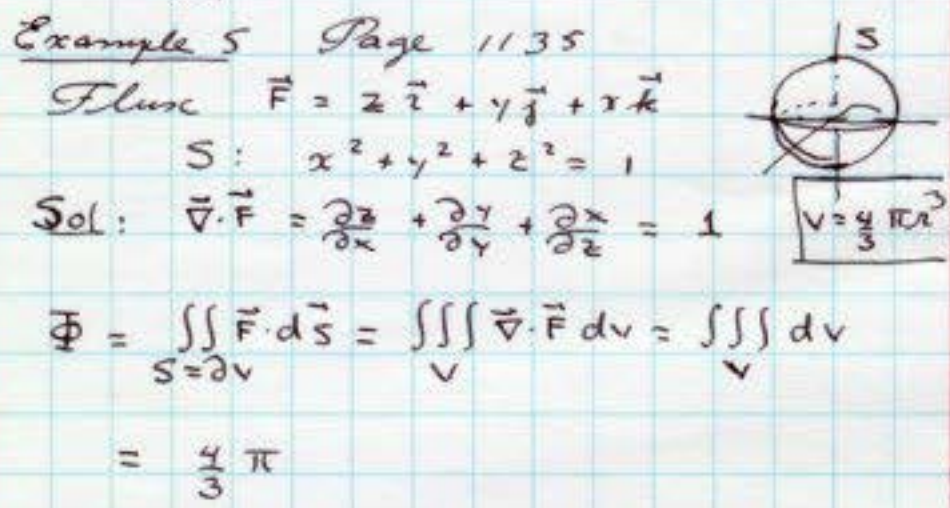 Example 5 Page 1135
S
Flux F⃗ = z i⃗ + y j⃗ + x k⃗
S: x² + y² + z² = 1
Sol: ∇⃗·F⃗ = ∂z/∂x + ∂y/∂y + ∂x/∂z = 1
V = 4/3 πr³
Φ = ∬_{S=∂V} F⃗·dS⃗ = ∭_V ∇⃗·F⃗ dv = ∭_V dv
= 4/3 π